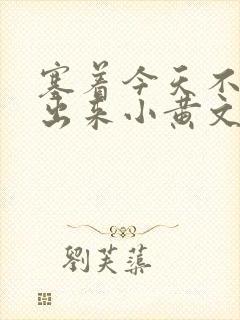 塞着今天不
出来小黄文
劉芙蕖